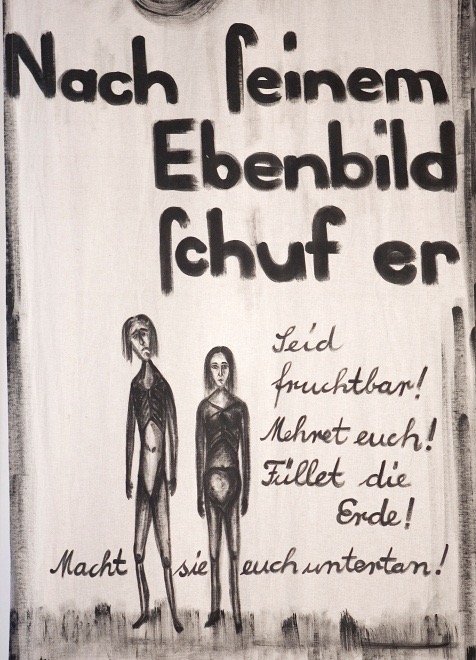 Nach ſeinem
Ebenbild
ſchuf er
Seid
fruchtbar!
Mehret euch!
Füllet die
Erde!
Macht sie euch untertan!